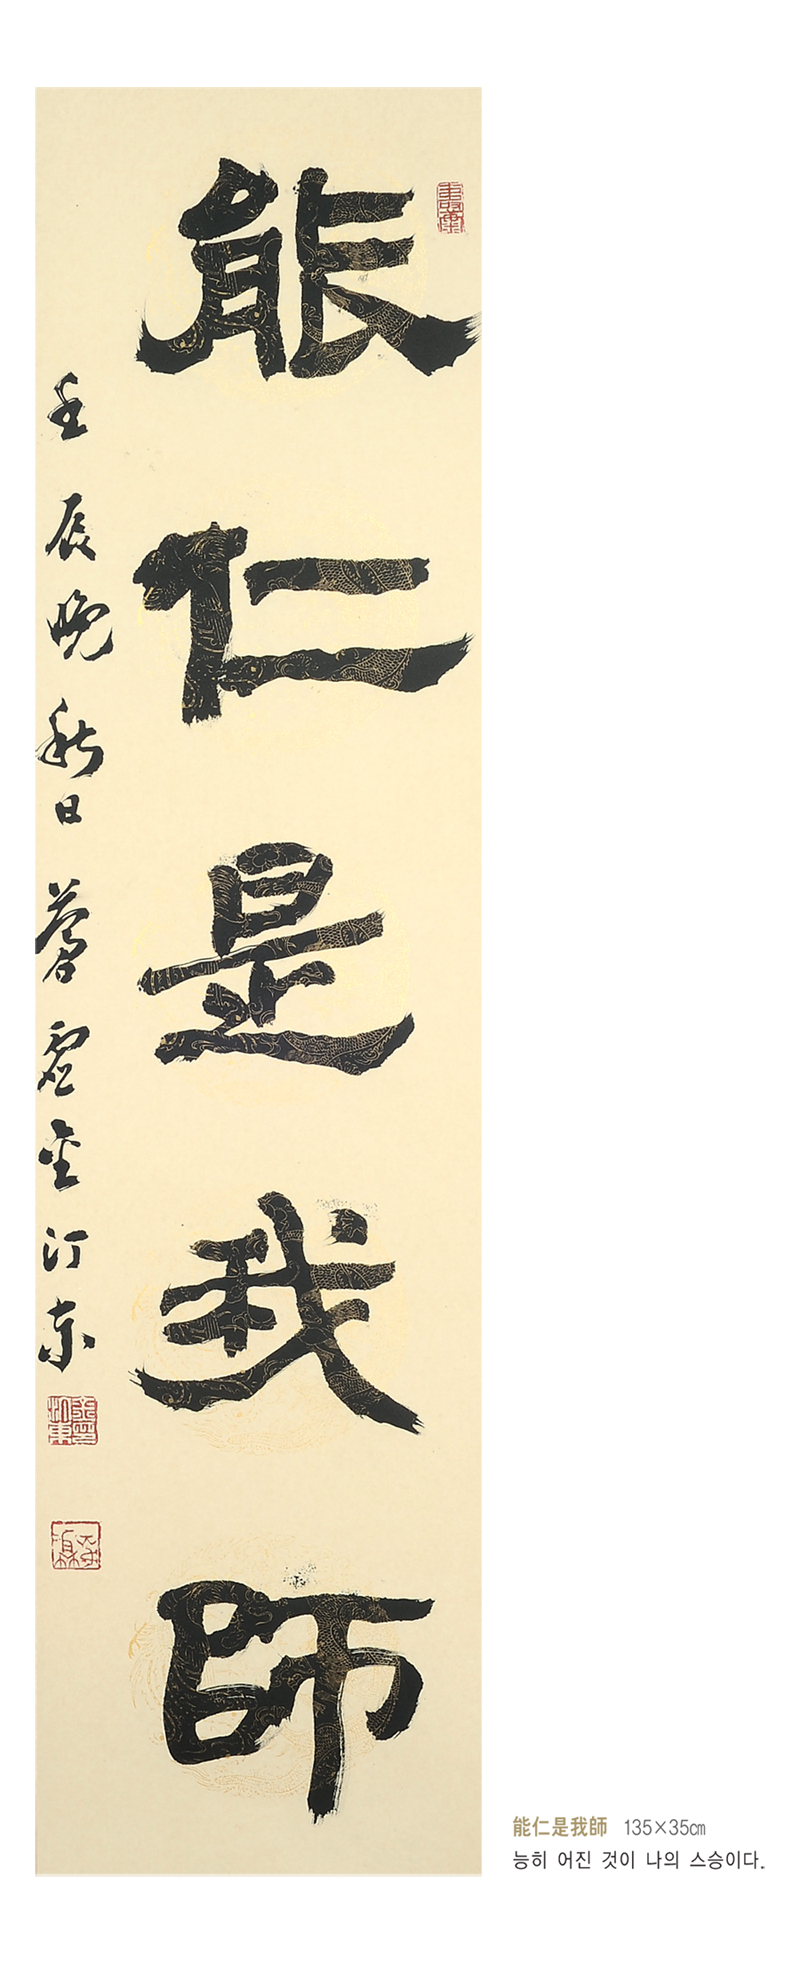 能仁是我師
壬辰晩秋日 夢虛金汀東
能仁是我師 135×35㎝
능히 어진 것이 나의 스승이다.